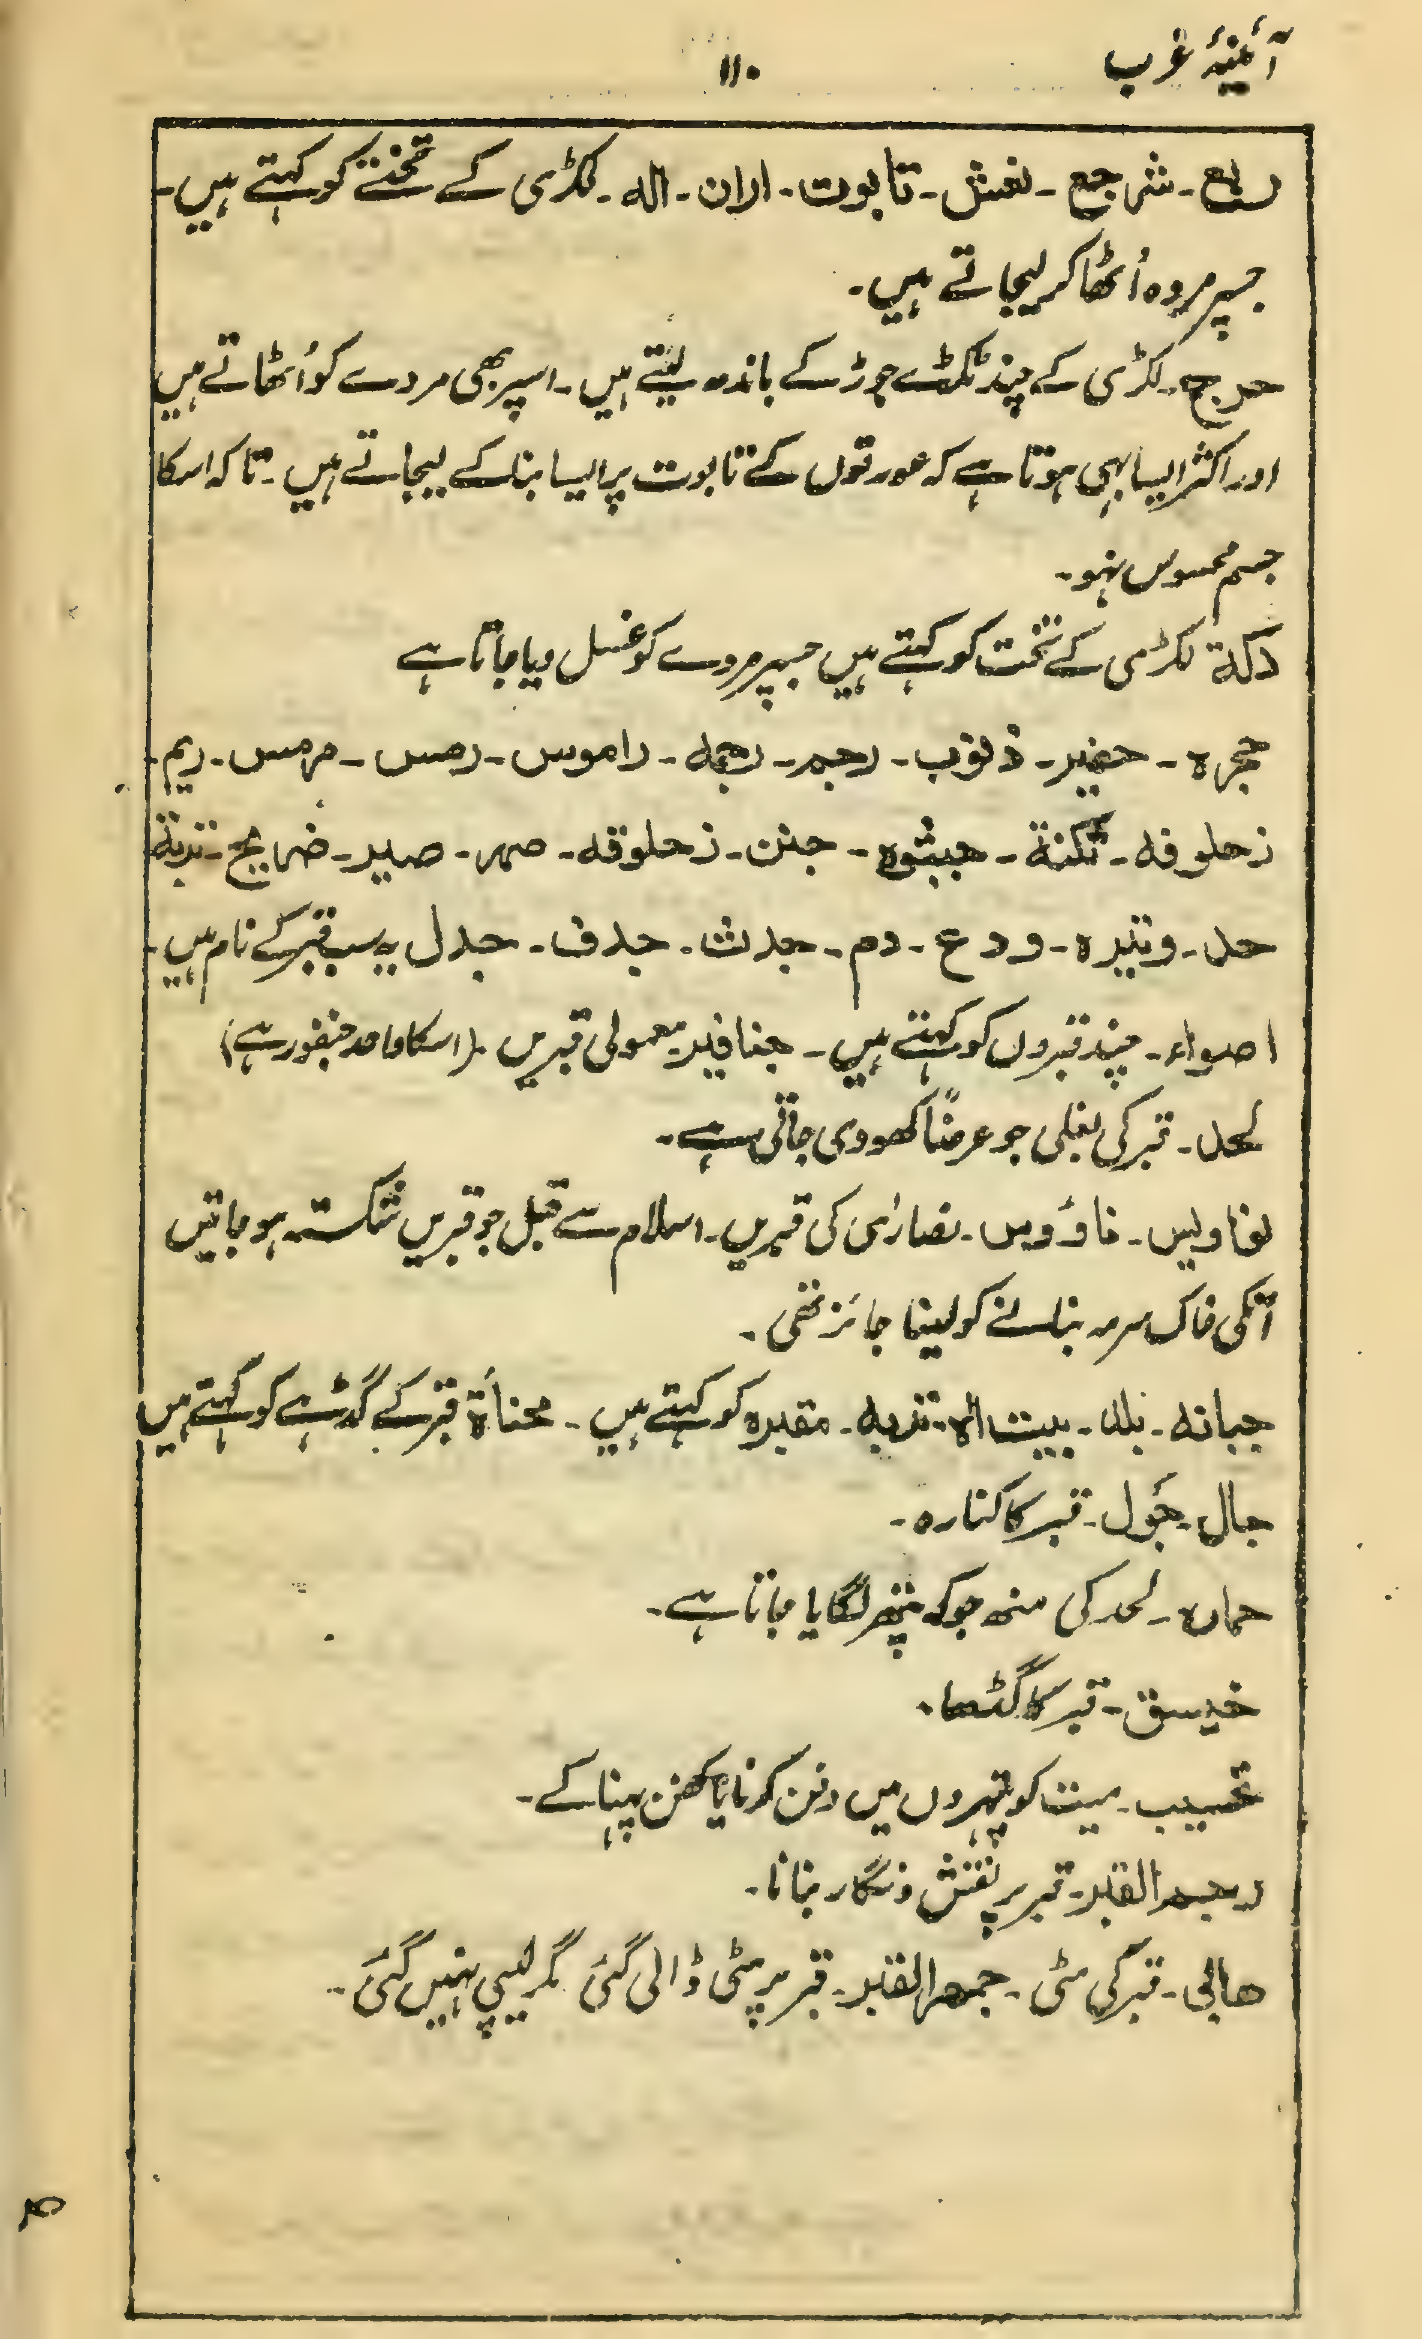 آئینۂ عرب
۱۱۰
ریع ۔ شرجع ۔ نعش ۔ تابوت ۔ اران ۔ اله ۔ لکڑی کے تختے کو کہتے ہیں ۔
جسپر مردہ اُٹھا کر لیجاتے ہیں ۔
حرج ۔ لکڑی کے چند ٹکڑے جوڑ کے باندھ لیتے ہیں ۔ اسپر بھی مردے کو اُٹھاتے ہیں
اور اکثر ایسا بہی ہوتا ہے کہ عورتوں کے تابوت پر ایسا بنا کے لیجاتے ہیں ۔ تاکہ اسکا
جسم محسوس نہو ۔
دکة لکڑی کے تخت کو کہتے ہیں جسپر مردے کو غسل دیا جاتا ہے
حجره ۔ حفیر ۔ ذنوب ۔ رجم ۔ رجمه ۔ راموس ۔ رمس ۔ مرمس ۔ ریم ۔
زحلوفه ۔ ثکنة ۔ جبثوه ۔ جنن ۔ زحلوقه ۔ صمر ۔ صیر ۔ ضریح ۔ تربة
حد ۔ وتیره ۔ ودع ۔ دم ۔ جدث ۔ جدف ۔ جدل یہ سب قبر کے نام ہیں ۔
اصواء ۔ چند قبروں کو کہتے ہیں ۔ جنافیر معمولی قبریں ۔ (اسکا واحد جنفور ہے)
لحد ۔ قبر کی بغلی جو عرضاً کھودی جاتی ہے ۔
نواویس ۔ ناؤوس ۔ نصارٰی کی قبریں ۔ اسلام سے قبل جو قبریں شکستہ ہو جاتیں
اُنکی خاک سرمہ بنانے کو لینا جائز تھی ۔
جبانه ۔ بلد ۔ بیت اله ۔ تربه ۔ مقبره کو کہتے ہیں ۔ محنأة قبر کے گڈہے کو کہتے ہیں
جال ۔ جُول ۔ قبر کا کنارہ ۔
حماره ۔ لحد کی منھ جو کہ پتھر لگایا جاتا ہے ۔
خیسق ۔ قبر کا گٹھا ۔
تحسیب ۔ میت کو پتہروں میں دفن کرنا یا کفن پہنا کے ۔
رجم القبر ۔ قبر پر نقش و نگار بنانا ۔
هابی ۔ قبر کی مٹی ۔ جمهر القبر ۔ قبر پر مٹی ڈالی گئی مگر لیپی نہیں گئی ۔